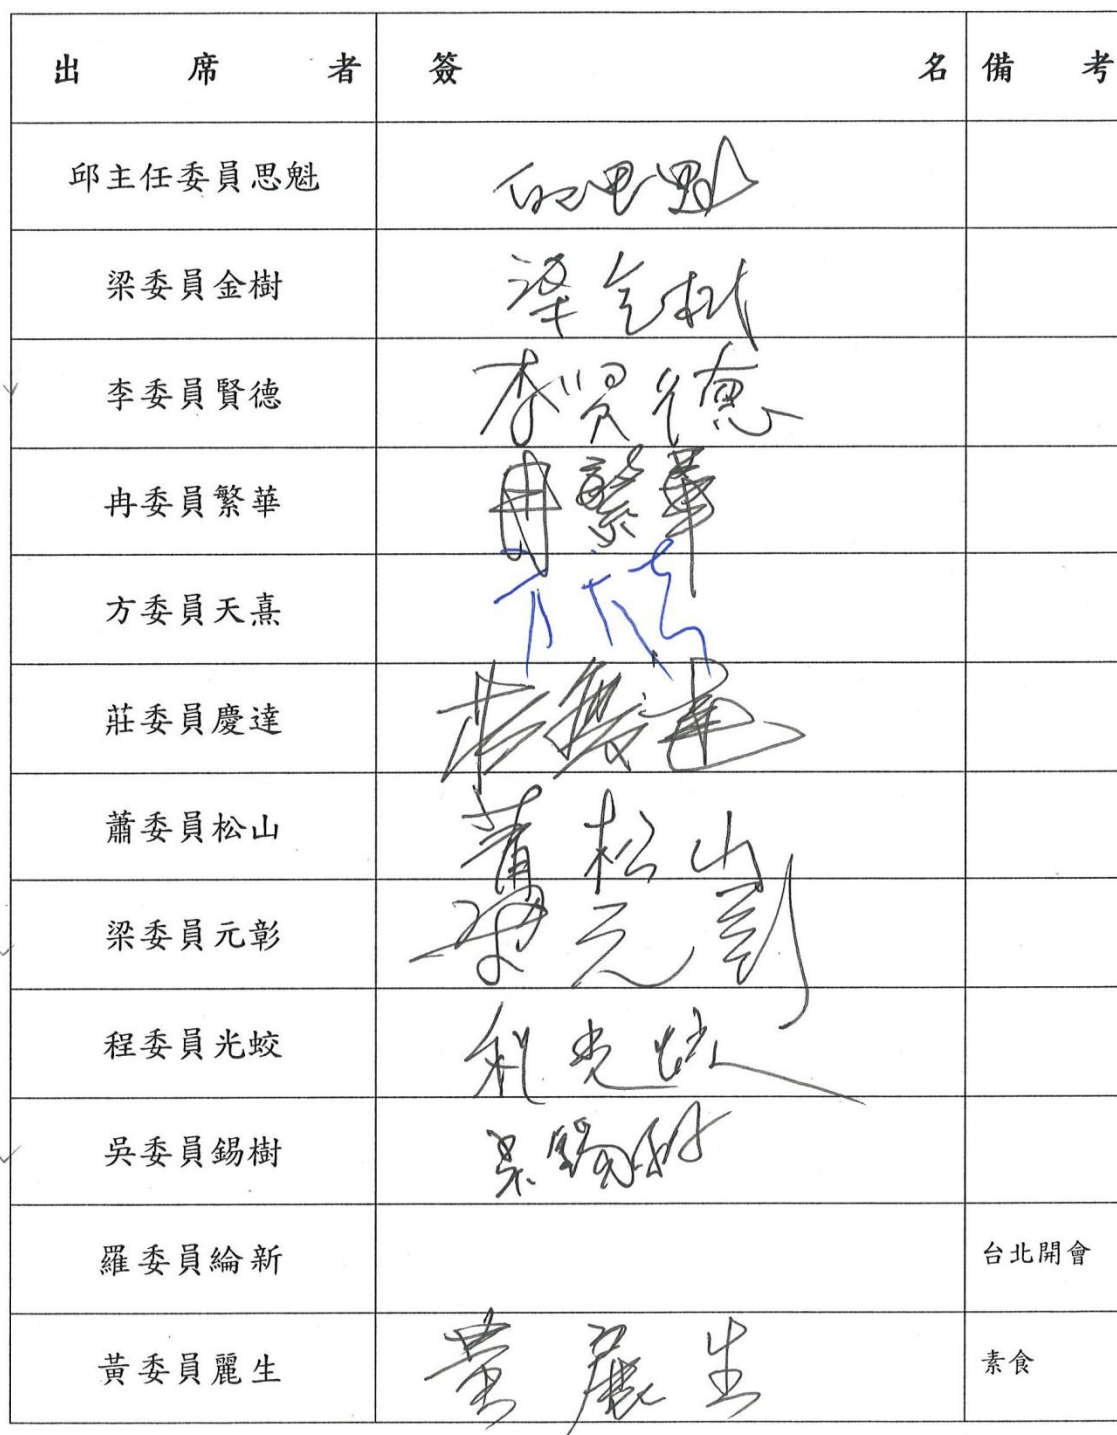 出席者 簽名 備考
邱主任委員思魁 邱思魁
梁委員金樹 梁金樹
李委員賢德 李賢德
冉委員繁華 冉繁華
方委員天熹 方天熹
莊委員慶達 莊慶達
蕭委員松山 蕭松山
梁委員元彰 梁元彰
程委員光蛟 程光蛟
吳委員錫樹 吳錫樹
羅委員綸新 台北開會
黃委員麗生 黃麗生 素食